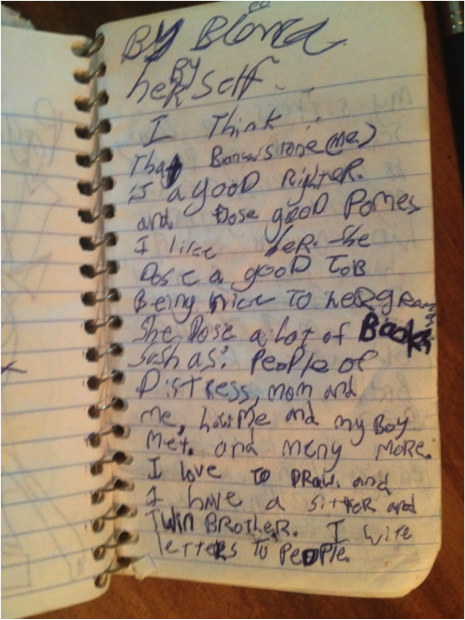 By
By
herself.
I Think
That (me)
is a good Righter.
and Dose good Pomes
I like her. She
Dose a good ToB
Being nice To
She Dose a lot of Books
Sush as: People of
Distress, mom and
me, how me and my Boy
Met. and meny More.
I love To Draw. and
I have a sitter and
Twin Brother. I wite
letters To People.